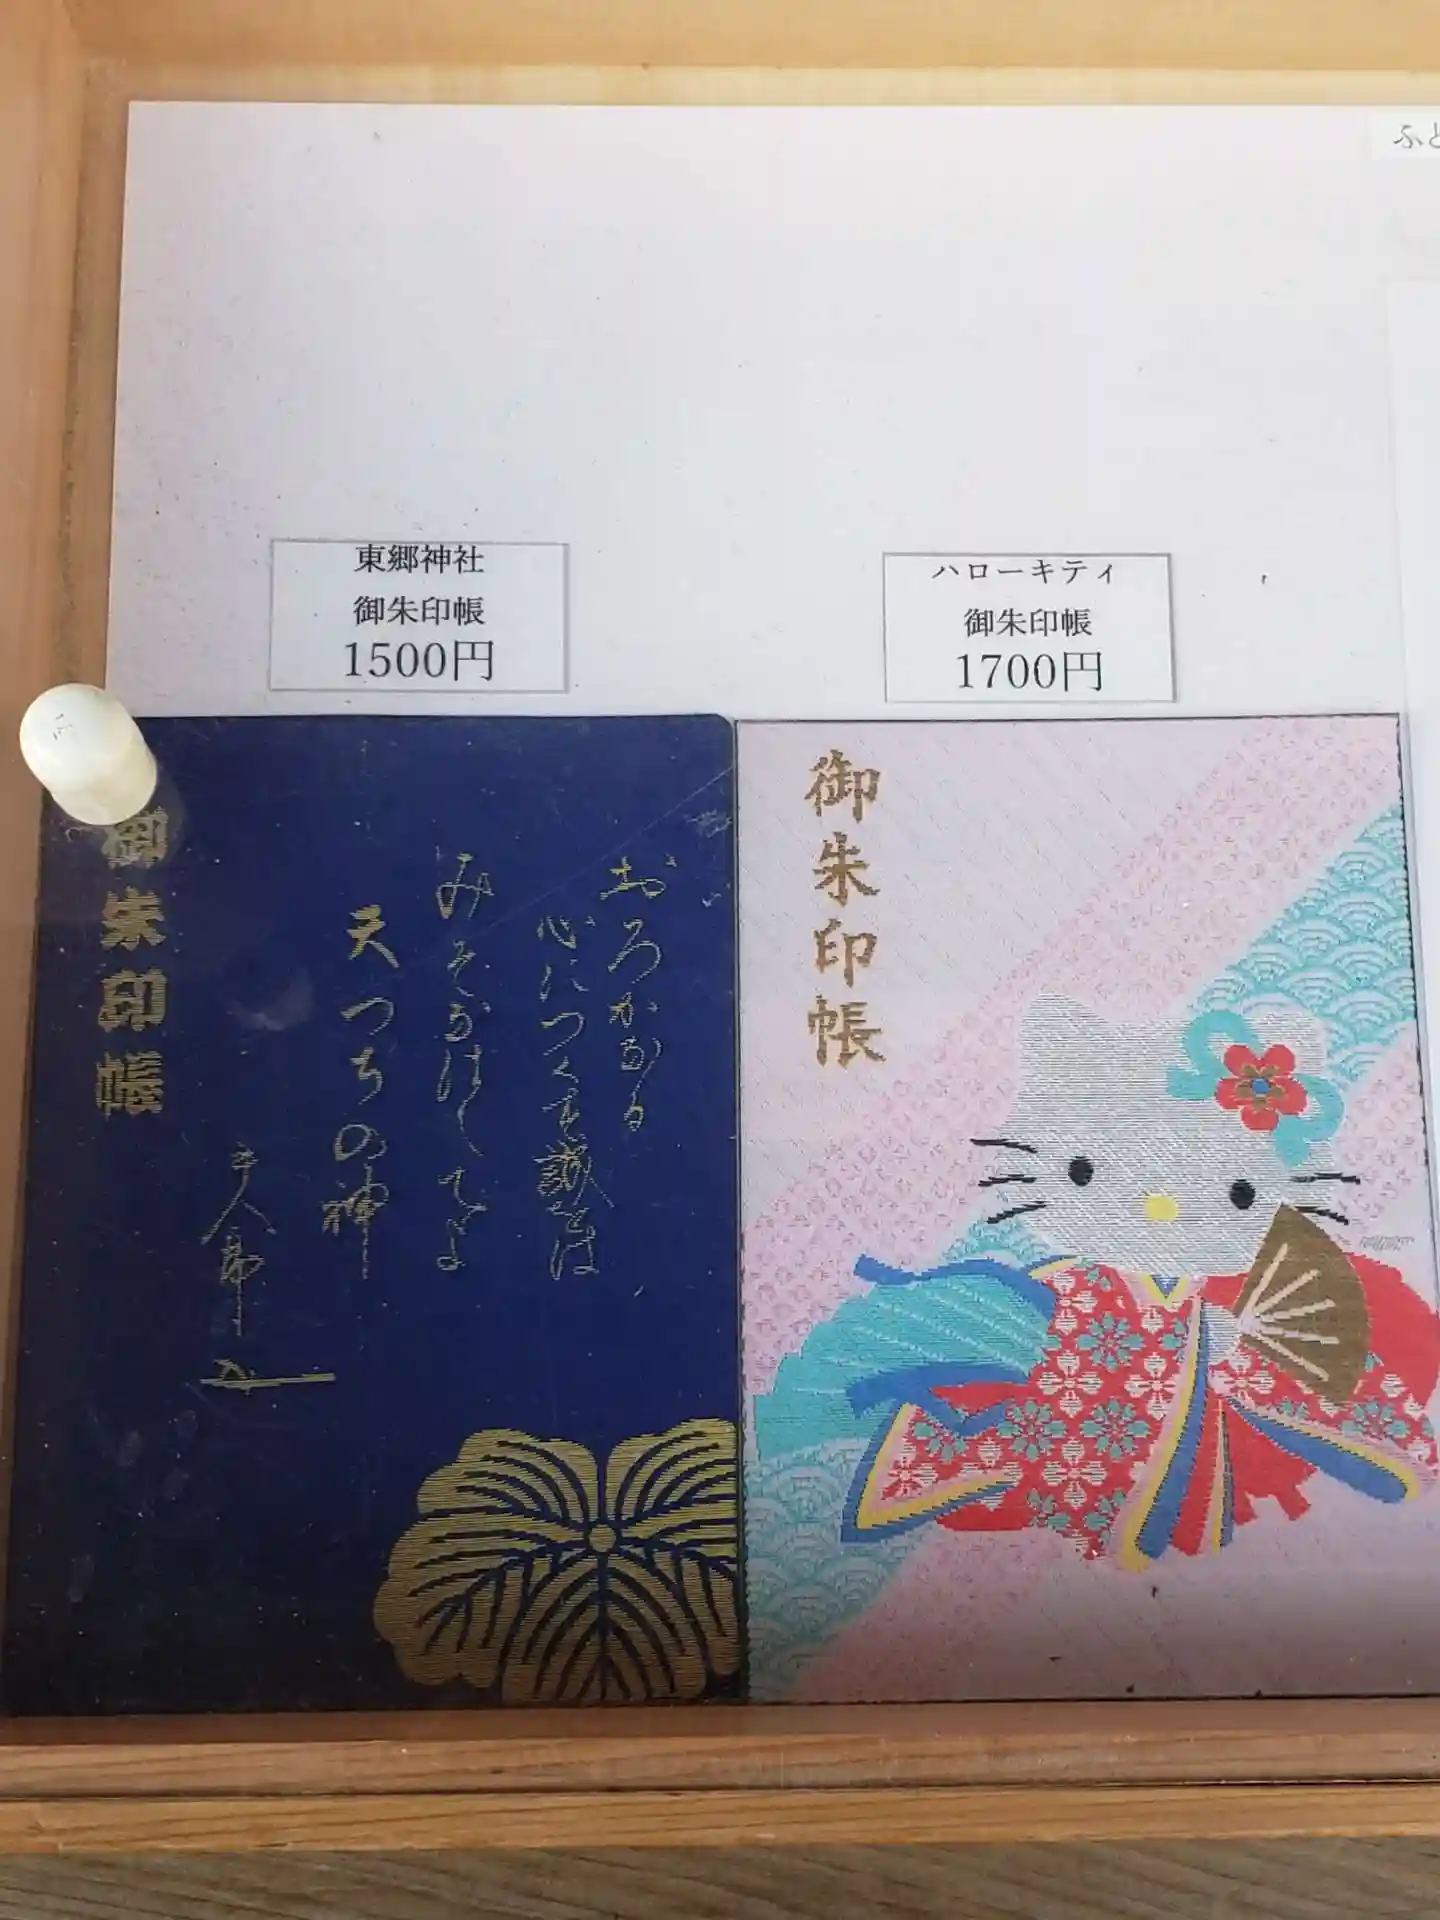 ふと
東郷神社
御朱印帳
1500円
ハローキティ
御朱印帳
1700円
御朱印帳
おろかなる
心につくす誠をは
みそなはしてよ
天つちの神
御朱印帳